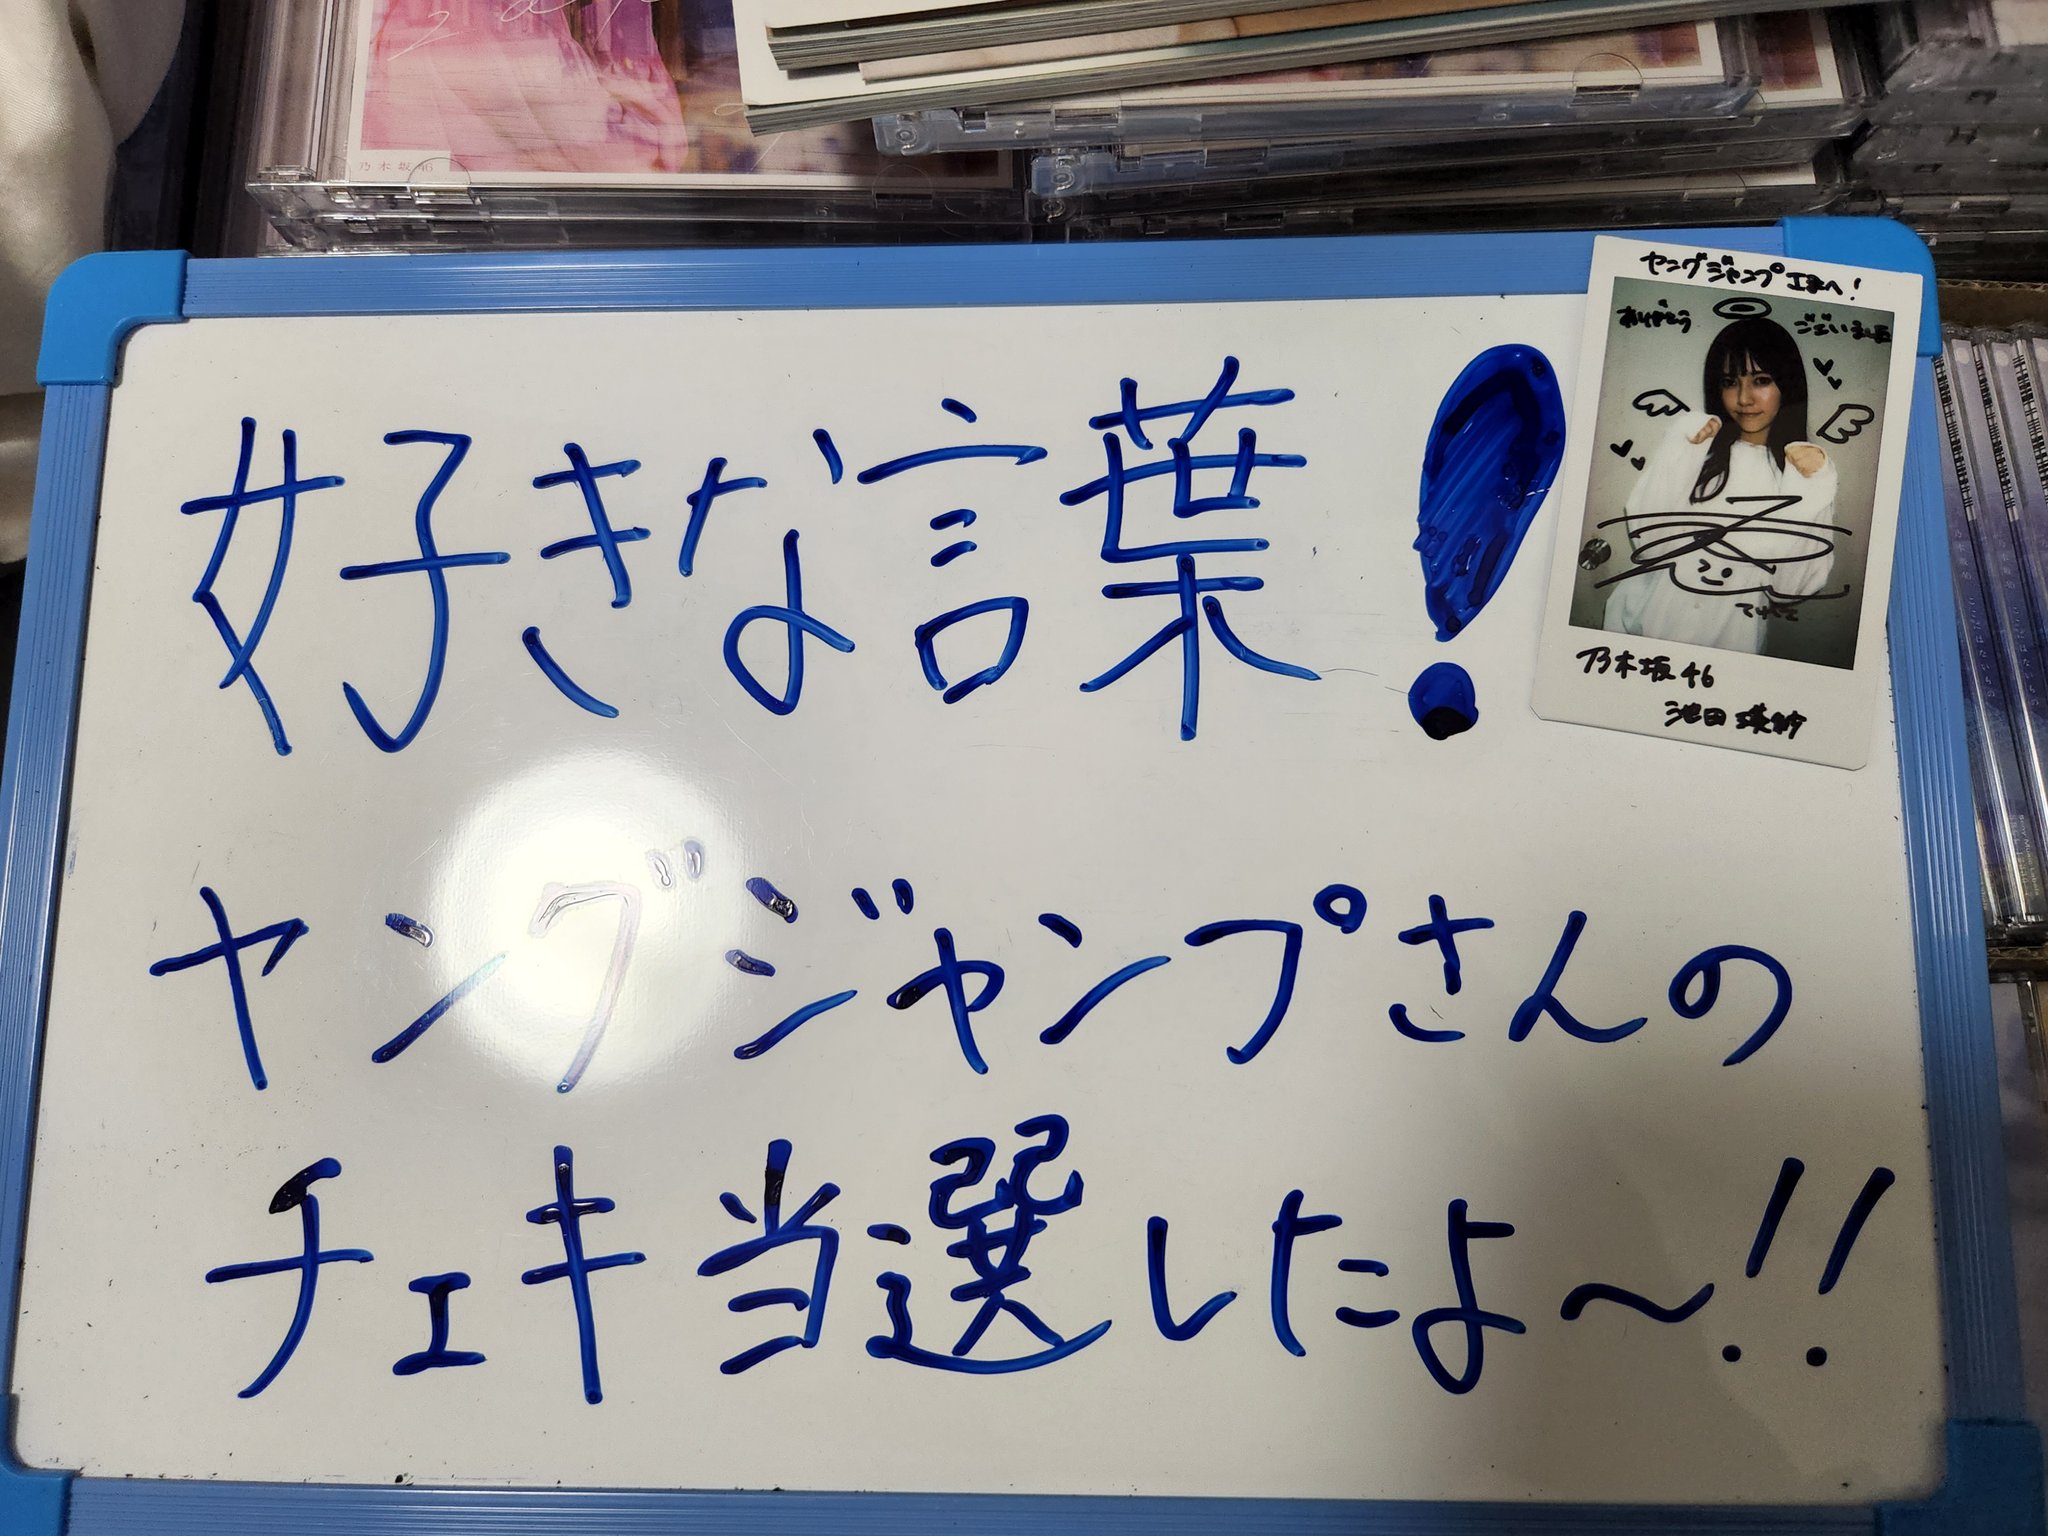 乃木坂46
好きな言葉!
ヤングジャンプさんの
チェキ当選したよ〜!!
ヤングジャンプ
ありがとう
ございました
てれさ
乃木坂46
池田 瑛紗